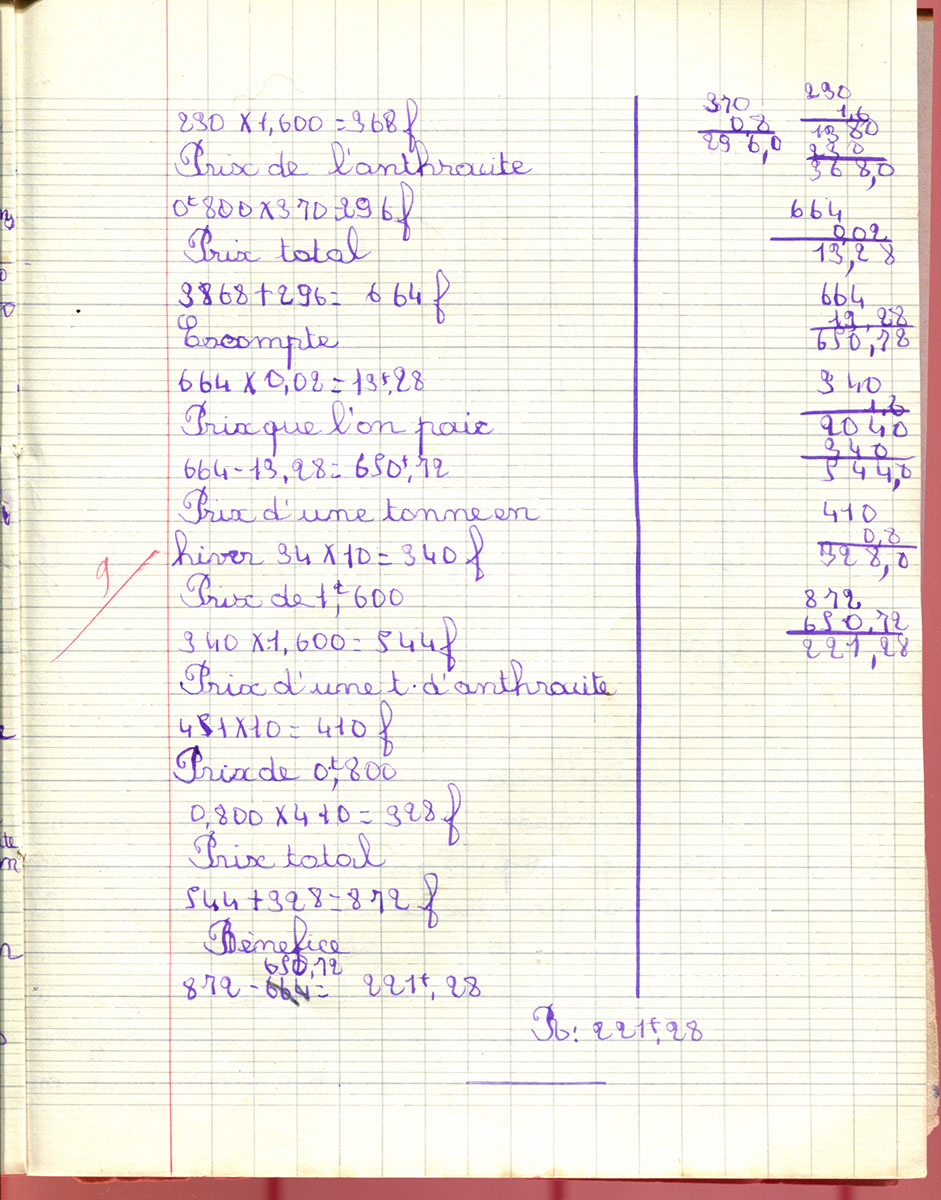 230 × 1,600 = 368 f
Prix de l'anthracite
0t 800 × 370 = 296 f
Prix total
3868 + 296 = 664 f
Escompte
664 × 0,02 = 13f,28
Prix que l'on paie
664 - 13,28 = 650f,72
Prix d'une tonne en
hiver 34 × 10 = 340 f
Prix de 1t,600
340 × 1,600 = 544 f
Prix d'une t. d'anthracite
41 × 10 = 410 f
Prix de 0t,800
0,800 × 410 = 328 f
Prix total
544 + 328 = 872 f
Bénéfice
650,72
872 - 664 = 221f,28
R: 221f,28
9
370
0 8
296,0
230
1,6
1380
230
368,0
664
0,02
13,28
664
13,28
650,78
340
1,6
2040
340
544,0
410
0,8
328,0
872
650,72
221,28